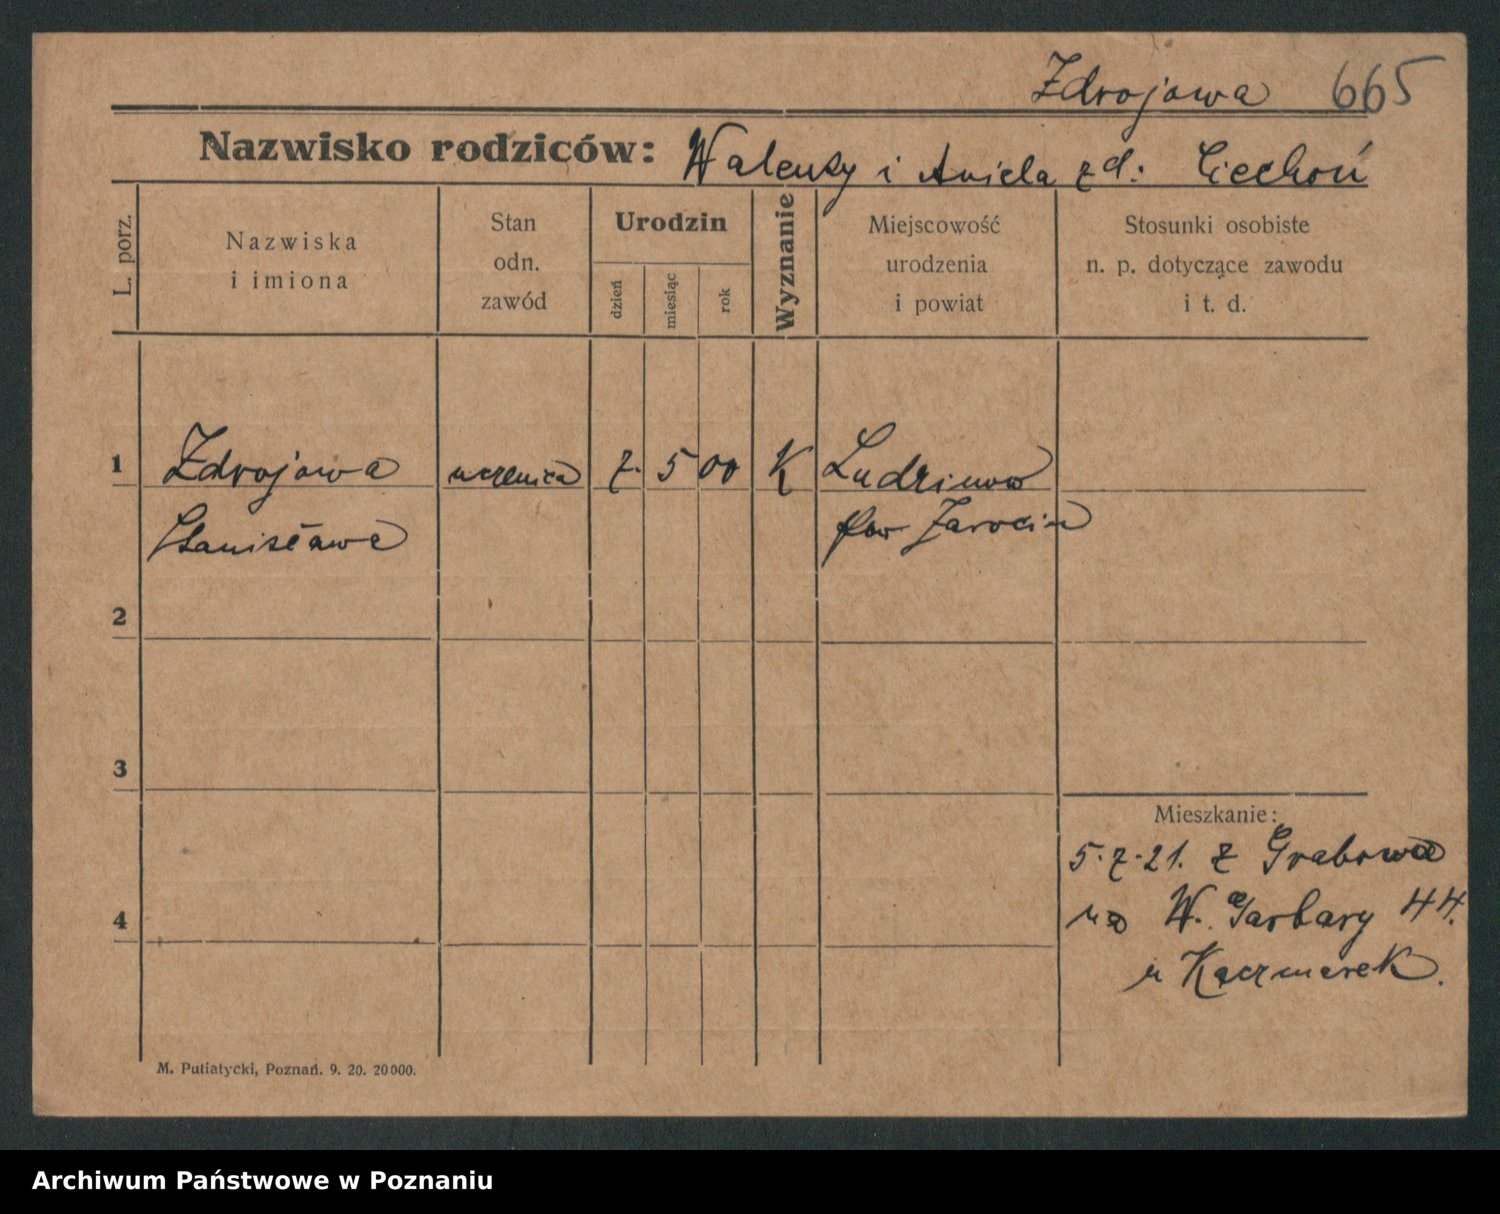 Zdrojowa 665
Nazwisko rodziców: Walenty i Aniela zd: Ciechoń
L. porz.
Nazwiska
i imiona
Stan
odn.
zawód
Urodzin
dzień
miesiąc
rok
Wyznanie
Miejscowość
urodzenia
i powiat
Stosunki osobiste
n. p. dotyczące zawodu
i t. d.
1 Zdrojowa uczenica 7. 5 00 K Ludzinow
Stanisława pow Jarocin
2
3
Mieszkanie:
5.7.21. z Grabowa
4
na W. Garbary 44.
u Kaczmarek.
M. Putiatycki, Poznań. 9. 20. 20000.
Archiwum Państwowe w Poznaniu